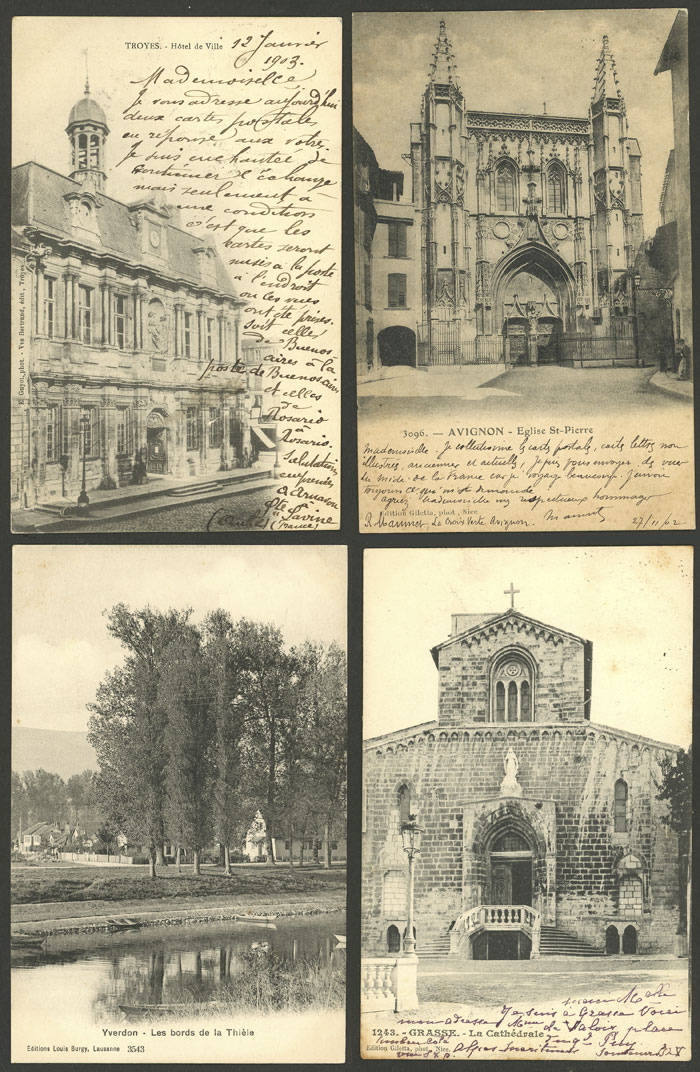 TROYES. - Hôtel de Ville
12 Janvier
1903.
Mademoiselle
Je vous adresse aujourd'hui
deux cartes postales
en réponse aux votre.
Je suis enchantée de
continuer l'échange
mais seulement à
une condition
c'est que les
cartes seront
mises à la poste
à l'endroit
ou les vues
ont été prises.
soit celles
de Buenos
aires à la
poste de Buenos aires
et celles
de
Rosario
à
Rosario.
Salutations
empressées
A.
Ste Savine
(Aube) (France)
E. Guyot, phot. - Vve Bertrand, édit., Troyes
3096. — AVIGNON - Eglise St-Pierre
Mademoiselle. Je collectionne la carte postale, carte lettres non
illustrées, anciennes et actuelles, je puis vous envoyer des vues
du midi de la France car je voyage beaucoup. J'aurai
toujours ce qui m'est demandé.
agréez mademoiselle mes respectueux hommages
Edition Giletta, phot., Nice
R. La Croix Verte. Avignon.
27/11/02
Yverdon - Les bords de la Thièle
Editions Louis Burgy, Lausanne 3543
1243. - GRASSE. - La Cathédrale
Edition Giletta, phot., Nice.
Je suis à Grasse Voici
mon adresse Mme de place
Alpes Maritimes